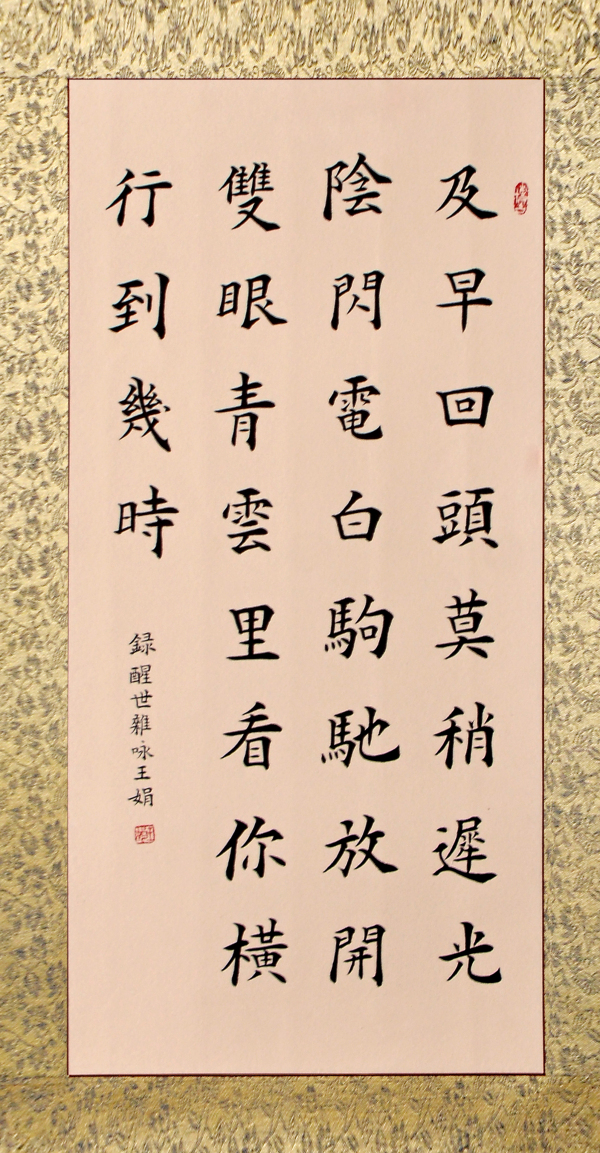 及早回頭莫稍遲光
陰閃電白駒馳放開
雙眼青雲里看你橫
行到幾時
録醒世雜咏王娟